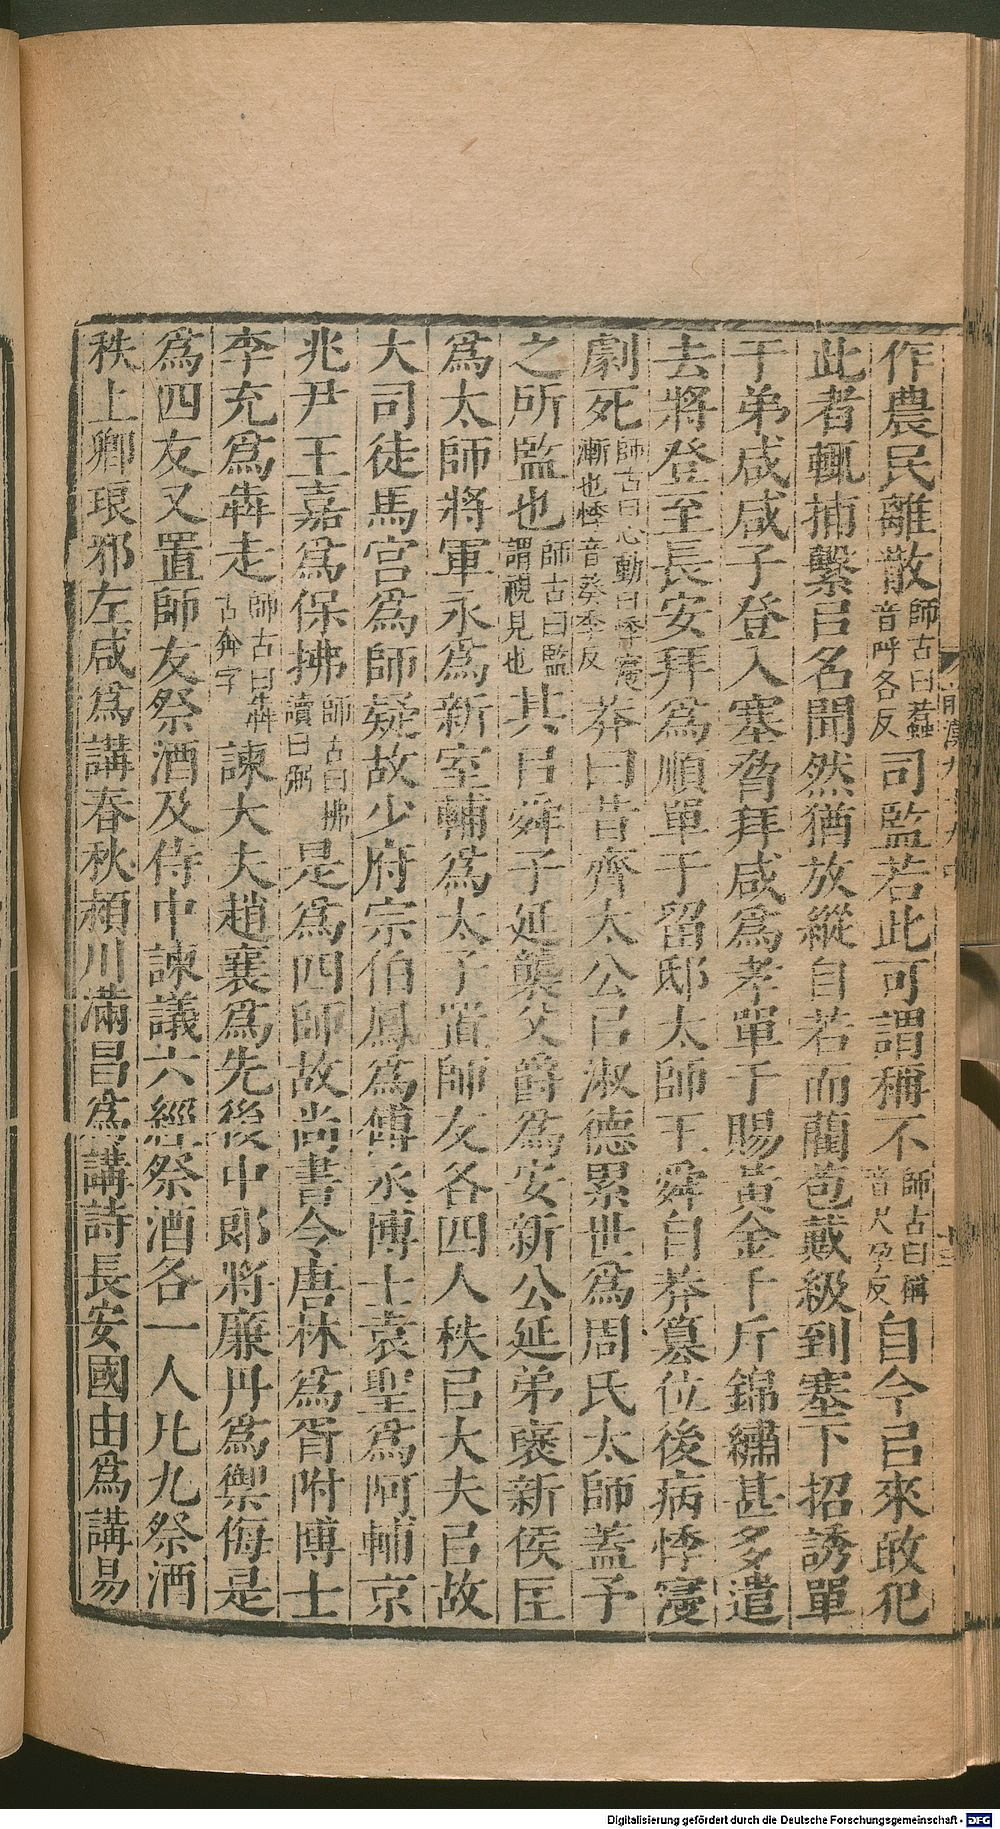 作農民離散師古曰蠚音呼各反司監若此可謂稱不師古曰稱音尺孕反自今㠯來敢犯
此者輒捕繫㠯名聞然猶放縱自若而藺苞戴級到塞下招誘單
于弟咸咸子登入塞脅拜咸爲孝單于賜黃金千斤錦繡甚多遣
去將登至長安拜爲順單于留邸太師王舜自莽篡位後病悸寖
劇死師古曰心動曰悸寖漸也悸音葵季反莽曰昔齊太公㠯淑德累世爲周氏太師蓋予
之所監也師古曰監謂視見也其㠯舜子延襲父爵爲安新公延弟襃新侯匡
爲太師將軍永爲新室輔爲太子置師友各四人秩㠯大夫㠯故
大司徒馬宮爲師疑故少府宗伯鳳爲傅丞博士袁聖爲阿輔京
兆尹王嘉爲保拂師古曰拂讀曰弼是爲四師故尚書令唐林爲胥附博士
李充爲犇走師古曰犇古奔字諫大夫趙襄爲先後中郎將廉丹爲禦侮是
爲四友又置師友祭酒及侍中諫議六經祭酒各一人凡九祭酒
秩上卿琅邪左咸爲講春秋潁川滿昌爲講詩長安國由爲講易
Digitalisierung gefördert durch die Deutsche Forschungsgemeinschaft - DFG